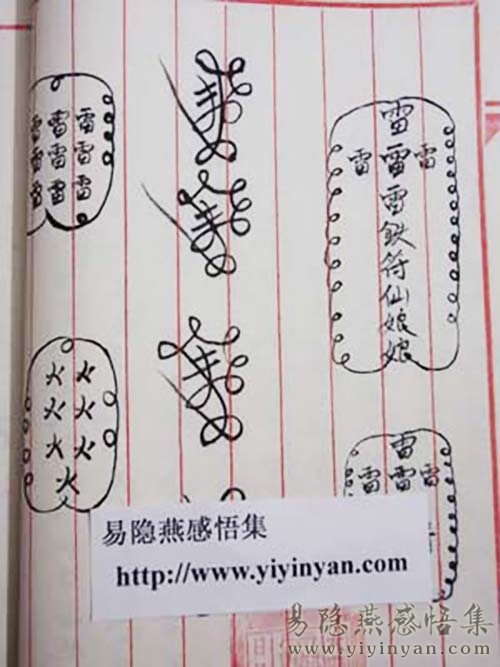 雷
雷雷雷
雷
鉄符仙娘娘
雷
雷雷雷
雷雷雷
雷雷雷
雷雷雷
火火
火火
火火
火
易隐燕感悟集
http://www.yiyinyan.com
易隐燕感悟集
www.yiyinyan.com